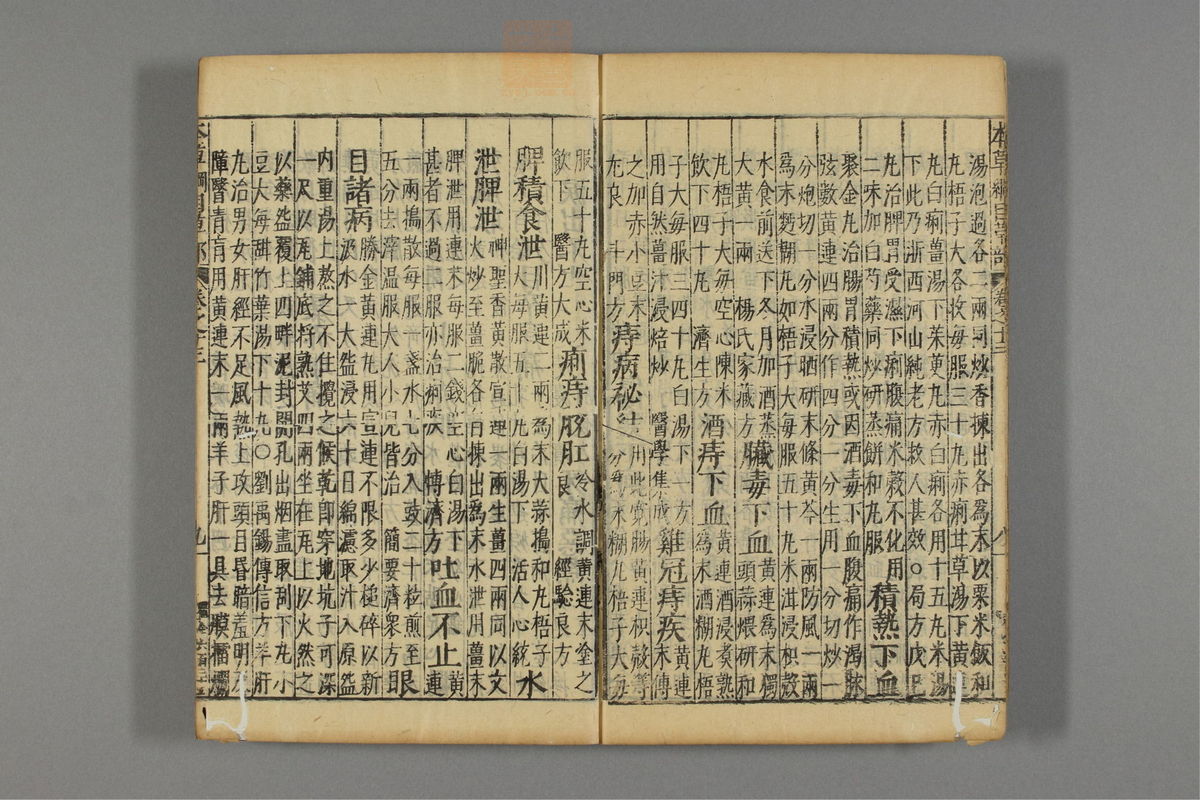 湯泡過各二兩同炒香揀出各爲末以粟米飯和
丸梧子大各收每服三十丸赤痢甘草湯下黃連
丸白痢薑湯下茱萸丸赤白痢各用十五丸米湯
下此乃浙西河山純老方救人甚效○局方戊巳
丸治脾胃受濕下痢腹痛米穀不化用
二味加白芍藥同炒研蒸餅和丸服 積熱下血
聚金丸治腸胃積熱或因酒毒下血腹痛作渴脉
弦數黃連四兩分作四分一分生用一分切炒一
分炮切一分水浸晒研末條黃芩一兩防風一兩
爲末麪糊丸如梧子大每服五十丸米泔浸枳殻
水食前送下冬月加酒蒸
大黃一兩 楊氏家藏方 臟毒下血 黃連爲末獨頭蒜煨研和
丸梧子大每空心陳米
飲下四十丸 濟生方 酒痔下血 黃連酒浸煮熟爲末酒糊丸梧
子大每服三四十丸白湯下 一方
用自然薑汁浸焙炒 醫學集成 雞冠痔疾 黃連末傅
之加赤小豆末
尤良 斗門方 痔病秘結 用此寬腸黃連枳殻等分爲末糊丸梧子大每
服五十丸空心米
飲下 醫方大成 痢痔脫肛 冷水調黃連末塗之良 經驗良方
脾積食泄 川黃連二兩爲末大蒜搗和丸梧子大每服五十丸白湯下 活人心統 水
泄脾泄 神聖香黃散宣連一兩生薑四兩同以文火炒至薑脆各自揀出爲末水泄用薑末
脾泄用連末每服二錢空心白湯下
甚者不過二服亦治痢疾 博濟方 吐血不止 黃連
一兩搗散每服一錢水七分入豉二十粒煎至
五分去滓温服大人小兒皆治 簡要濟衆方 眼
目諸病 勝金黃連丸用宣連不限多少搥碎以新汲水一大盌浸六十日綿濾取汁入原盌
内重湯上熬之不住攪之候乾卽穿地坑子可深
一尺以瓦鋪底將熟艾四兩坐在瓦上以火然之
以藥盌覆上四畔泥封開孔出烟盡取刮下丸小
豆大每甜竹葉湯下十丸○劉禹錫傳信方羊肝
丸治男女肝經不足風熱上攻頭目昏暗羞明及
障瞖青盲用黃連末一兩羊子肝一具去膜擂爛